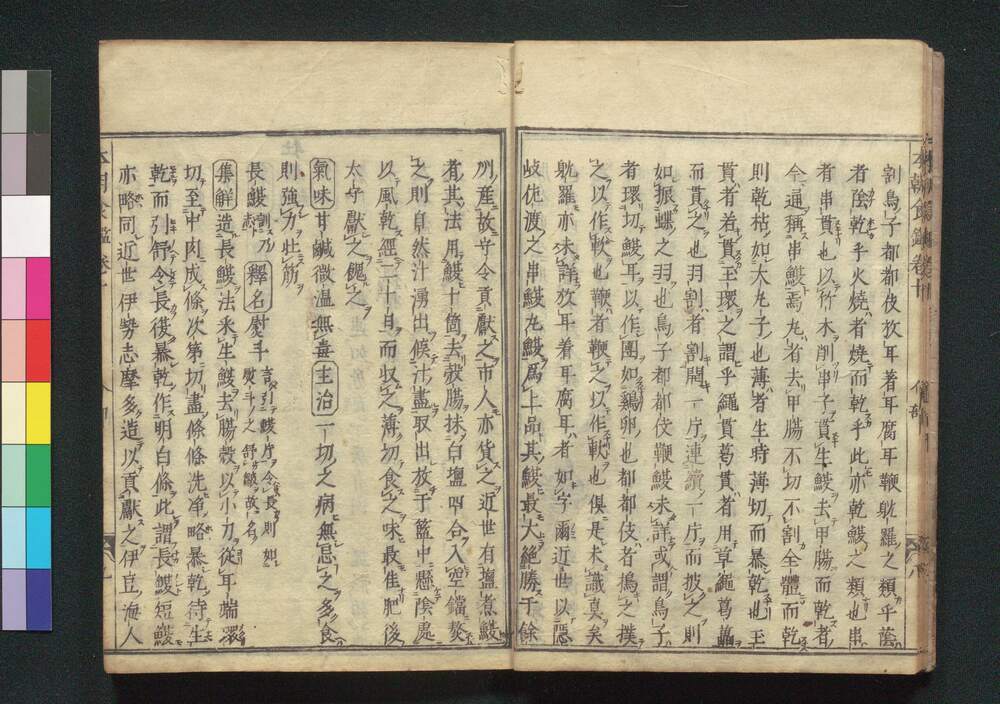 割鳥子都都伎放耳着耳腐耳鞭躭羅之類乎蔭
者陰乾乎火燒者燒而乾乎此亦乾鰒之類也串
者串貫也以竹木削串子貫生鰒去甲腸而乾者
今通稱串鰒焉丸者去甲腸不切不割全體而乾
則乾枯如大丸子也薄者生時薄切而暴乾也玉
貫者若貫玉環之謂乎繩貫葛貫者用草繩葛藟
而貫之也羽割者割開一片連續一片而披之則
如振蝶之羽也鳥子都都伎鞭鰒未詳或謂鳥子
者環切鰒耳以作團如鷄卵也都都伎者搗之撲
之以作軟也鞭者鞭之以作軟也俱是未識真矣
躭羅亦未詳放耳着耳腐耳者如字爾近世以隱
岐佐渡之串鰒丸鰒爲上品其鰒最大絶勝于餘
州産故守令貢獻之市人亦貨之近世有塩煮鰒
者其法用鰒十箇去殼腸抹白塩四合入空鐺熬
之則自然汁湧出候汁盡取出放于籃中懸陰處
以風乾經二十日而収之薄切食之味最佳肥後
太守獻之餽之
氣味甘鹹微温無毒主治一切之病無忌之多食
則強力壮筋
長鰒釋名熨斗
集解造長鰒法采生鰒去腸殼以小刀從耳端環
切至中肉成條次第切盡條條洗淨略暴乾待生
乾而引舒令長復暴乾作明白條此謂長鰒短鰒
亦略同近世伊勢志摩多造以貢獻之伊豆海人